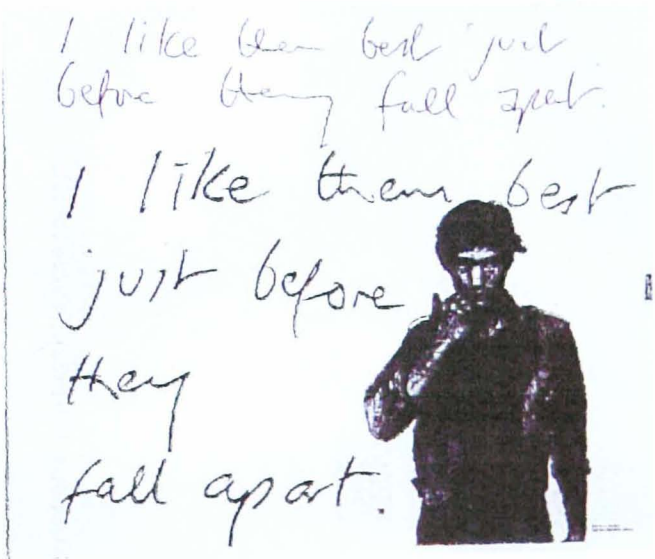 I like them best just
before they fall apart.
I like them best
just before
they
fall apart.